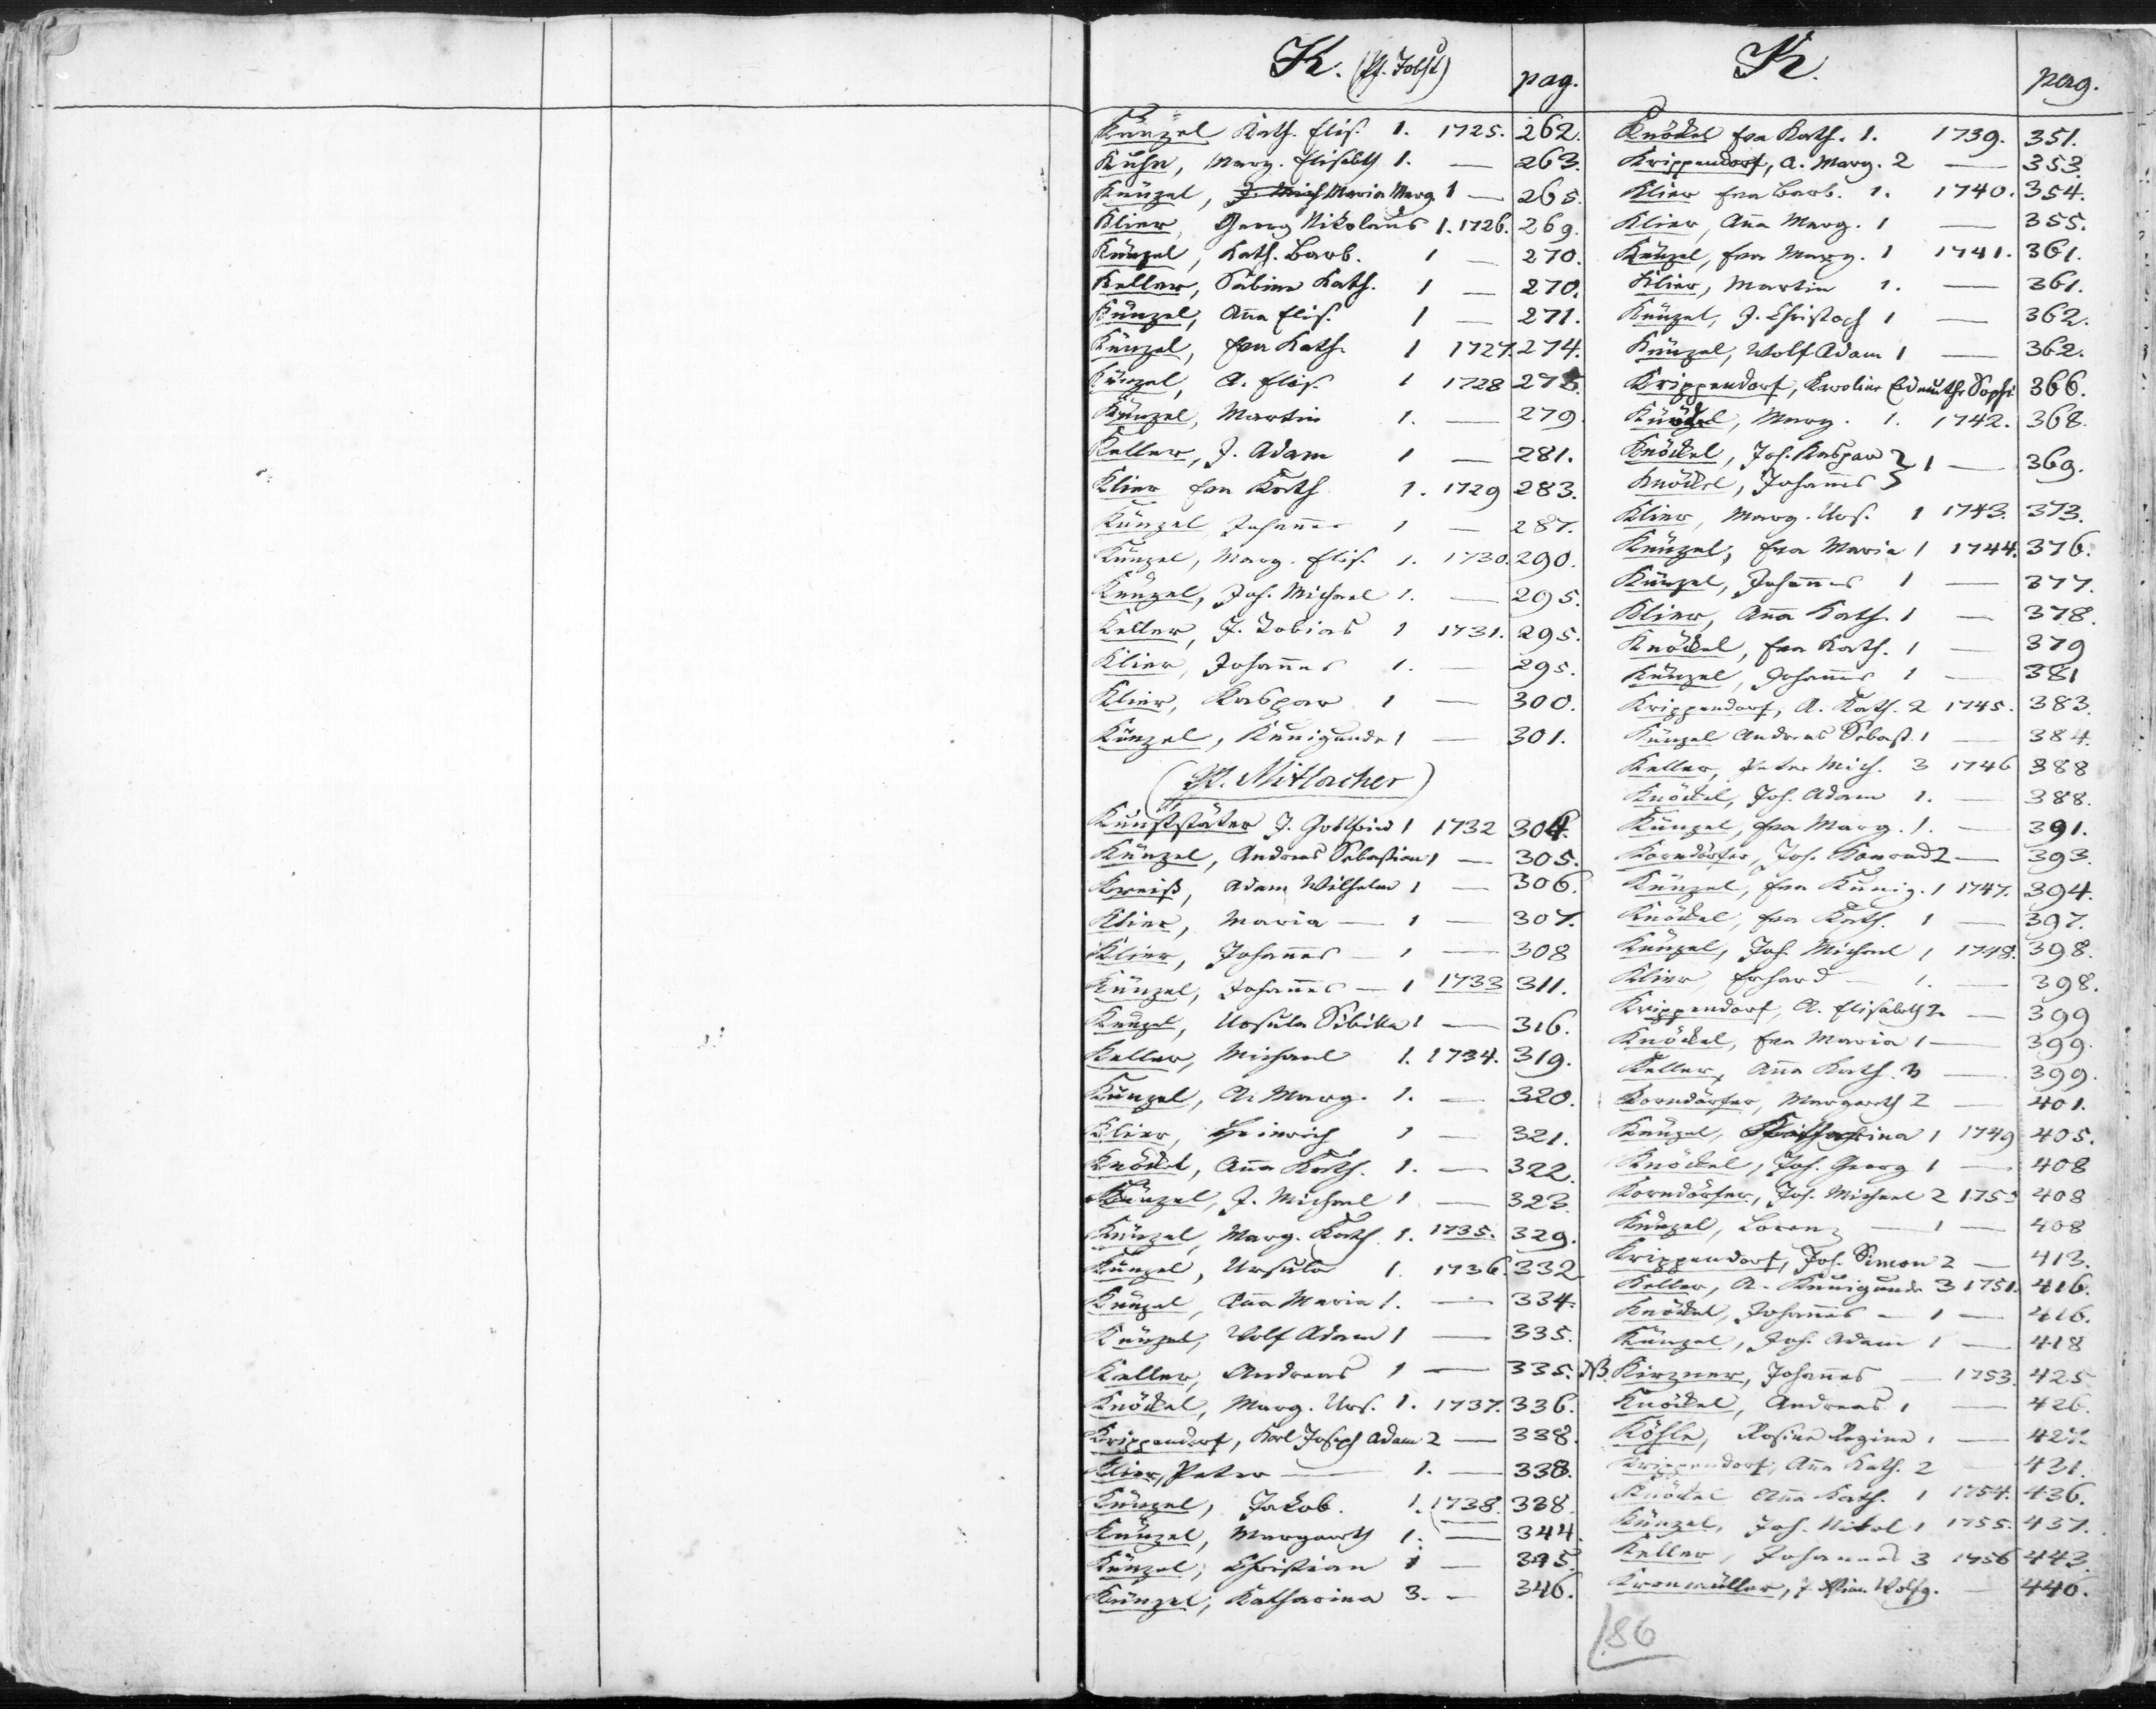 K. (Pf. Jobst)
pag.
Künzel Kath. Elis. 1. 1725. 262.
Kuhn, Marg. Elisabeth 1. — 263.
Künzel, J. Mich Maria Marg. 1 — 265.
Klier, Georg Nikolaus 1. 1726. 269.
Künzel, Kath. Barb. 1 — 270.
Keller, Sabina Kath. 1 — 270.
Künzel, Aña Elis. 1 — 271.
Künzel, Eva Kath. 1 1727. 274.
Künzel, A. Elis. 1 1728 275.
Künzel, Martin 1. — 279.
Keller, J. Adam 1 — 281.
Klier Eva Kath 1. 1729 283.
Künzel, Johannes 1 — 287.
Künzel, Marg. Elis. 1. 1730. 290.
Künzel, Joh. Michael 1. — 295.
Keller, J. Tobias 1 1731. 295.
Klier, Johannes 1. — 295.
Klier, Kaspar 1 — 300.
Künzel, Kunigunda 1 — 301.
(Pf. Mitlacher)
Kunststäter J. Gottfried 1 1732 304.
Künzel, Andreas Sebastian 1 — 305.
Kreiß, Adam Wilhelm 1 — 306.
Klier, Maria — 1 — 307.
Klier, Johannes — 1 — 308
Künzel, Johannes — 1 1733 311.
Künzel, Ursula Sibilla 1 — 316.
Keller, Michael 1. 1734. 319.
Künzel, A. Marg. 1. — 320.
Klier, Heinrich 1 — 321.
Knöckel, Aña Kath. 1. — 322.
Künzel, J. Michael 1 — 323.
Künzel, Marg. Kath. 1. 1735. 329.
Künzel, Ursula 1. 1736. 332
Künzel, Aña Maria 1. — 334.
Künzel, Wolf Adam 1 — 335.
Keller, Andreas 1 — 335.
Knöckel, Marg. Urs. 1. 1737. 336.
Krippendorf, Karl Joseph Adam 2 — 338.
Klier, Peter — 1. — 338.
Künzel, Jakob. 1. 1738. 338.
Künzel, Margareth 1. — 344.
Künzel, Christian 1 — 345.
Künzel, Katharina 3. — 346.
K.
pag.
Knöckel Eva Kath. 1. 1739. 351.
Krippendorf, A. Marg. 2 — 353.
Klier Eva Barb. 1. 1740. 354.
Klier, Aña Marg. 1 — 355.
Künzel, Eva Marg. 1 1741. 361.
Klier, Martin 1. — 361.
Künzel, J. Christoph 1 — 362.
Künzel, Wolf Adam 1 — 362.
Krippendorf, Karoline Erdmuthe Soph. 366.
Künzel, Marg. 1. 1742. 368.
Knöckel, Joh. Kaspar } 1 — 369.
Knöckel, Johannes
Klier, Marg. Urs. 1 1743. 373.
Künzel, Eva Maria 1 1744. 376.
Künzel, Johannes 1 — 377.
Klier, Aña Kath. 1 — 378.
Knöckel, Eva Kath. 1 — 379
Künzel, Johannes 1 — 381
Krippendorf, A. Kath. 2 1745. 383.
Künzel Andreas Sebast. 1 — 384.
Keller, Peter Mich. 3 1746 388
Knöckel, Joh. Adam 1. — 388.
Künzel, Eva Marg. 1. — 391.
Korndörfer, Joh. Konrad 2 — 393.
Künzel, Eva Kunig. 1 1747. 394.
Knöckel, Eva Kath. 1 — 397.
Künzel, Joh. Michael 1 1748. 398.
Klier, Erhard — 1. — 398.
Krippendorf, A. Elisabeth 2 — 399
Knöckel, Eva Maria 1 — 399.
Keller, Aña Kath. 3 — 399.
Korndörfer, Margareth 2 — 401.
Künzel, Katharina 1 1749 405.
Knöckel, Joh. Georg 1 — 408
Korndörfer, Joh. Michael 2 1750 408
Künzel, Lorenz — 1 — 408
Krippendorf, Joh. Simon 2 — 413.
Keller, A. Kunigunda 3 1751. 416.
Knöckel, Johannes — 1 — 416.
Künzel, Joh. Adam 1 — 418
NB. Kirzner, Johannes — 1753. 425
Knöckel, Andreas 1 — 426.
Köhle, Rosina Regina 1 — 427.
Krippendorf, Aña Kath. 2 — 431.
Knöckel Aña Kath. 1 1754. 436.
Künzel, Joh. Nikol 1 1755. 437.
Keller, Johannes 3 1756 443
Kronmüller, J. Wolfg. — 446.
186